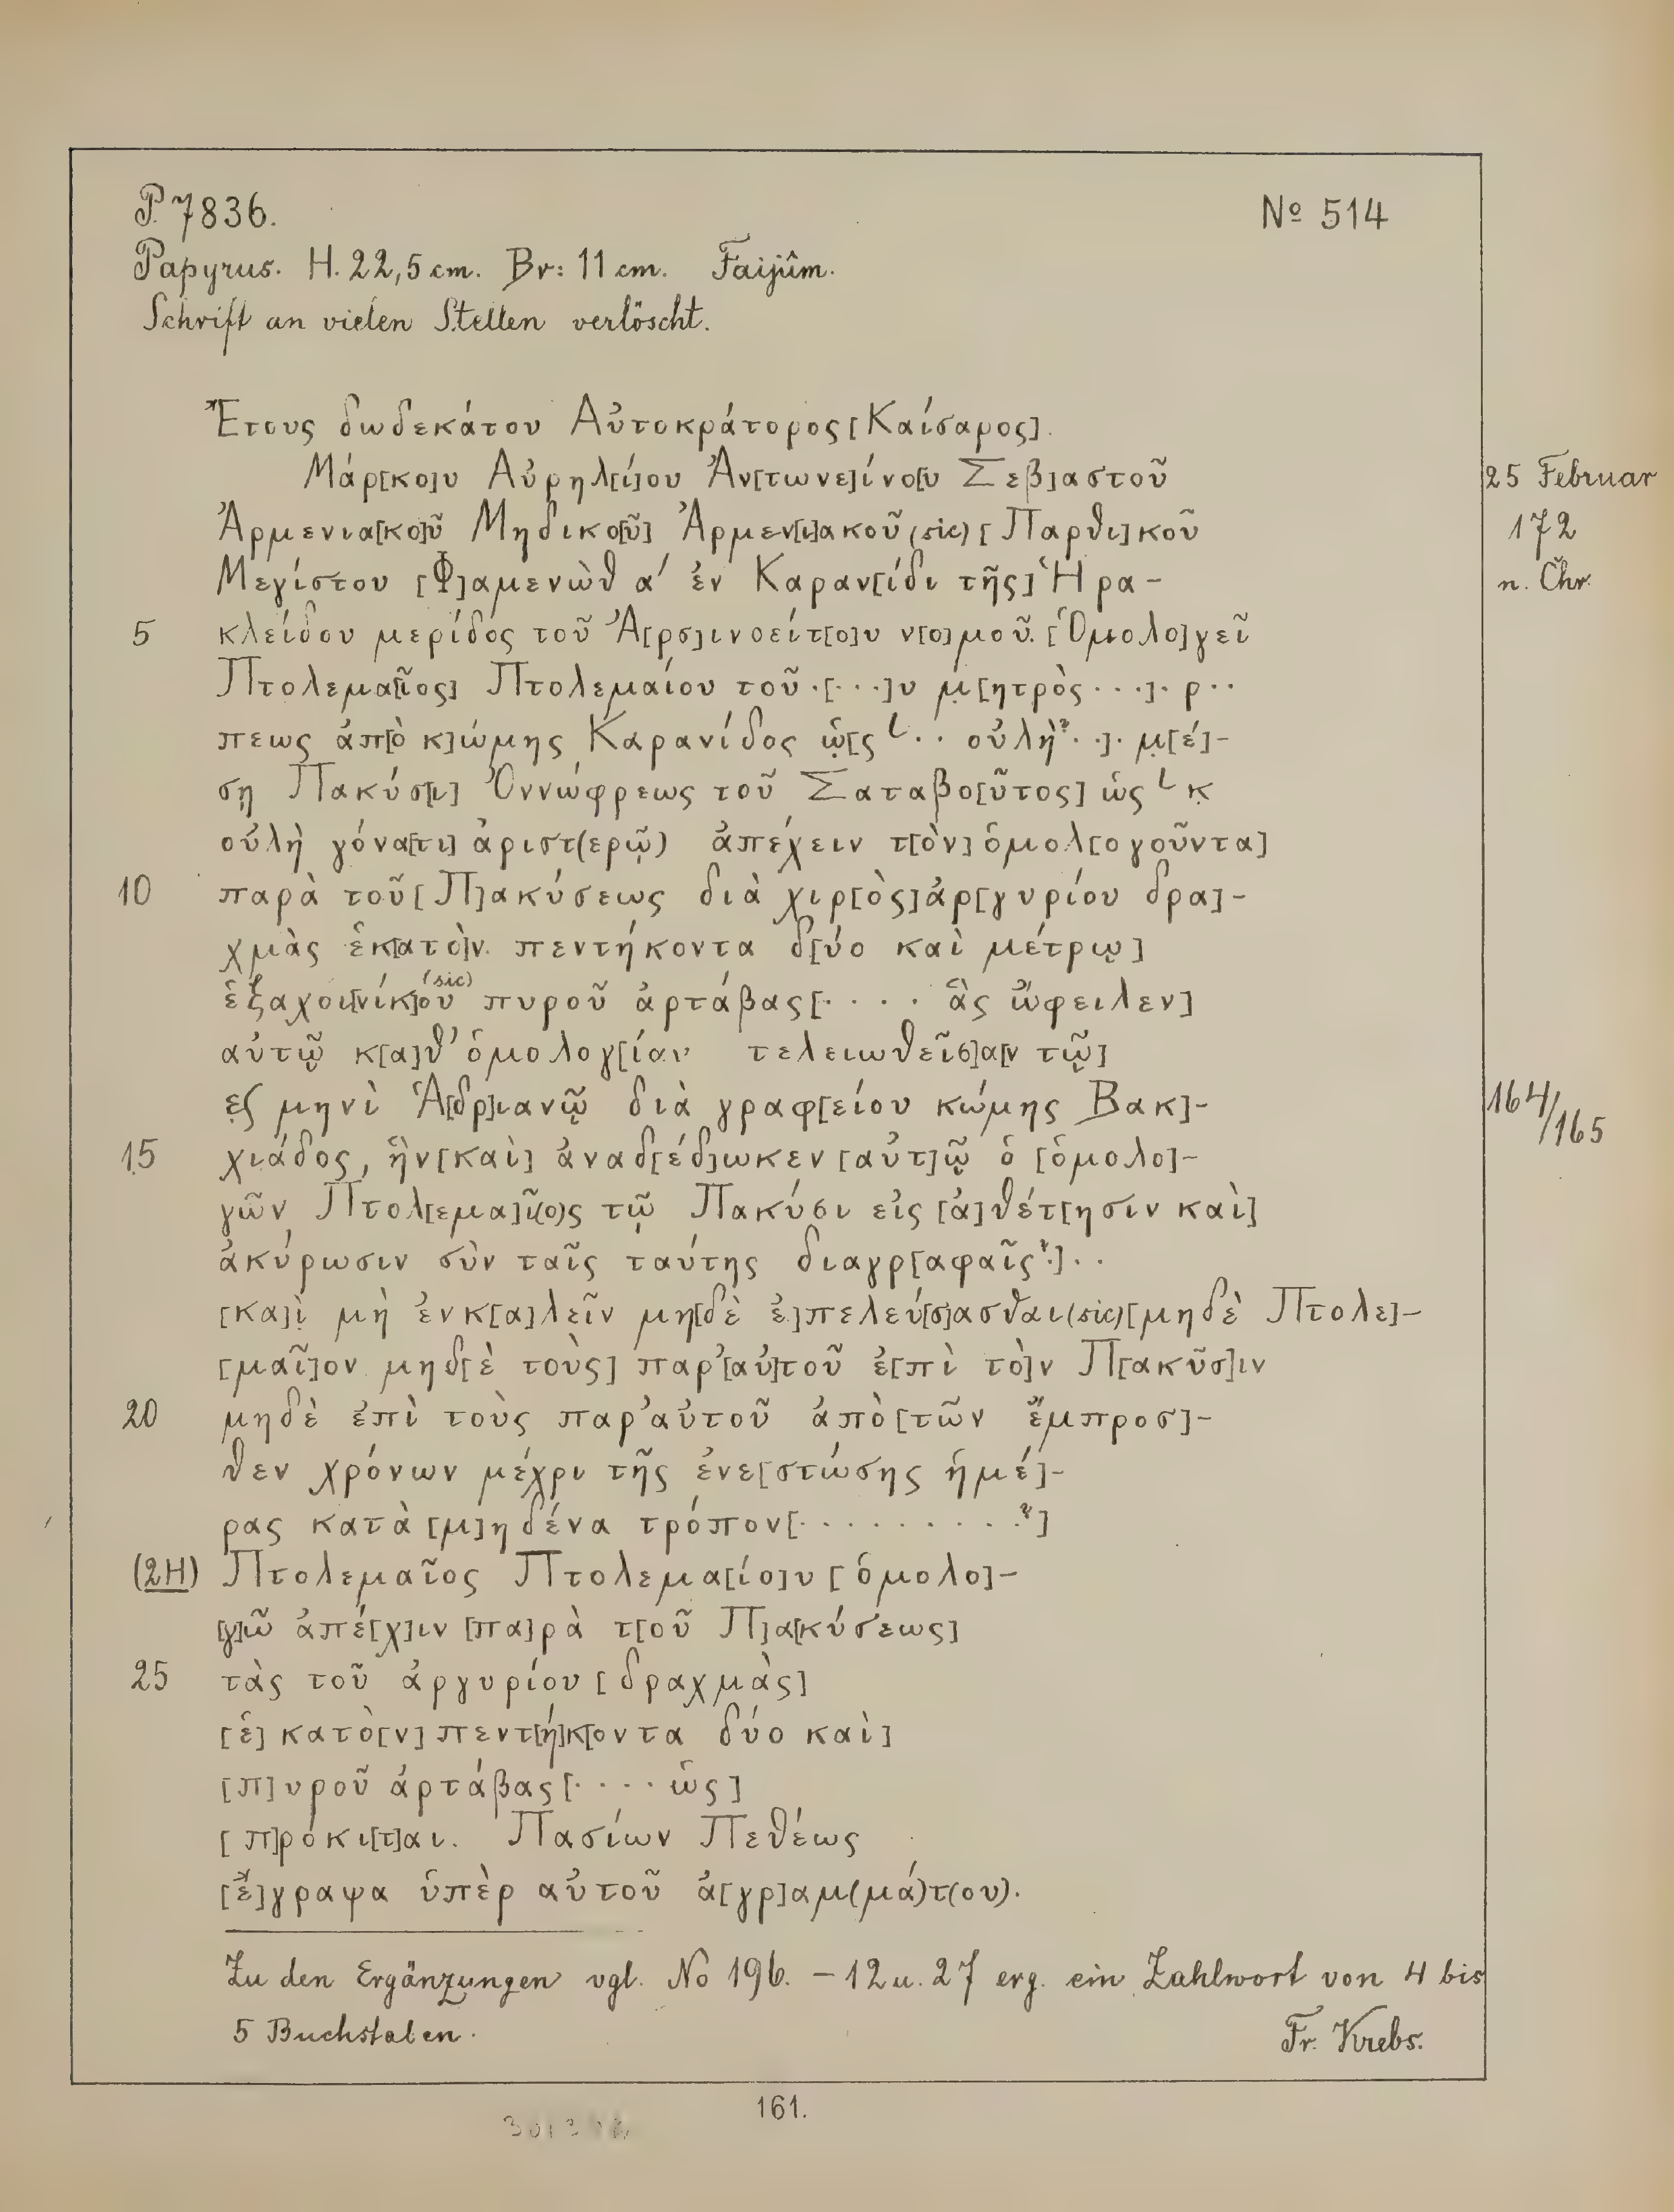 P. 7836. Nº 514
Papyrus. H. 22,5 cm. Br: 11 cm. Faijûm.
Schrift an vielen Stellen verlöscht.
Ἔτους δωδεκάτου Αὐτοκράτορος [Καίσαρος].
Μάρ[κο]υ Αὐρηλ[ί]ου Ἀν[τωνε]ίνο[υ Σεβ]αστοῦ 25 Februar
Ἀρμενια[κο]ῦ Μηδικο[ῦ] Ἀρμεν[ι]ακοῦ (sic) [Παρθι]κοῦ 172
Μεγίστου [Φ]αμενὼθ α' ἐν Καραν[ίδι τῆς] Ἡρα- n. Chr.
5 κλείδου μερίδος τοῦ Ἀ[ρσ]ινοείτ[ο]υ ν[ο]μοῦ. [Ὁμολο]γεῖ
Πτολεμα[ῖος] Πτολεμαίου τοῦ ·[· · ·]υ μ̣[ητρὸς · · ·]· ρ · ·
πεως ἀπ[ὸ κ]ώμης Καρανίδος ὡ̣[ς L · · οὐλὴ? · ·]· μ̣[έ]-
σῃ Πακύσ[ι] Ὀννώφρεως τοῦ Σαταβο[ῦτος] ὡς L κ̣
οὐλὴ γόνα[τι] ἀριστ(ερῷ) ἀπέχειν τ[ὸν] ὁμολ[ογοῦντα]
10 παρὰ τοῦ [Π]ακύσεως διὰ χιρ[ὸς] ἀρ[γυρίου δρα]-
χμὰς ἑκ[ατὸ]ν πεντήκοντα δ[ύο καὶ μέτρῳ]
ἑξαχοι[νίκ]ου (sic) πυροῦ ἀρτάβας [· · · · ἃς ὤφειλεν]
αὐτῷ κ[α]θ' ὁμολογ[ίαν τελειωθεῖσ]α[ν τῷ]
ε̣ς μηνὶ Ἁ[δρ]ιανῷ διὰ γραφ[είου κώμης Βακ]- 164/165
15 χιάδος, ἣν [καὶ] ἀναδ[έδ]ωκεν [αὐτ]ῷ ὁ [ὁμολο]-
γῶν Πτολ[εμα]ῖ(ο)ς τῷ Πακύσι εἰς [ἀ]θέτ[ησιν καὶ]
ἀκύρωσιν σὺν ταῖς ταύτης διαγρ[αφαῖς?·]· ·
[κα]ὶ̣ μὴ ἐνκ[α]λεῖν μη[δὲ ἐ]πελεύ[σ]ασθαι (sic) [μηδὲ Πτολε]-
[μαῖ]ον μηδ[ὲ τοὺς] παρ' [αὐ]τοῦ ἐ[πὶ τὸ]ν Π[ακῦσ]ιν
20 μηδὲ ἐπὶ τοὺς παρ' αὐτοῦ ἀπὸ [τῶν ἔμπροσ]-
θεν χρόνων μέχρι τῆς ἐνε[στώσης ἡμέ]-
ρας κατὰ [μ]ηδένα τρόπον [· · · · · · · · · ·?]
(2H) Πτολεμαῖος Πτολεμα[ίο]υ [ὁμολο]-
[γ]ῶ ἀπέ[χ]ιν [πα]ρὰ τ[οῦ Π]α[κύσεως]
25 τὰς τοῦ ἀργυρίου [δραχμὰς]
[ἑ]κατὸ[ν] πεντ[ή]κ[οντα δύο καὶ]
[π]υροῦ ἀρτάβας [· · · · ὡς]
[π]ρόκι[τ]αι. Πασίων Πεθέως
[ἔ]γραψα ὑπὲρ αὐτοῦ ἀ[γρ]αμ(μά)τ(ου).
Zu den Ergänzungen vgl. No 196. – 12 u. 27 erg. ein Zahlwort von 4 bis
5 Buchstaben. Fr. Krebs.
161.